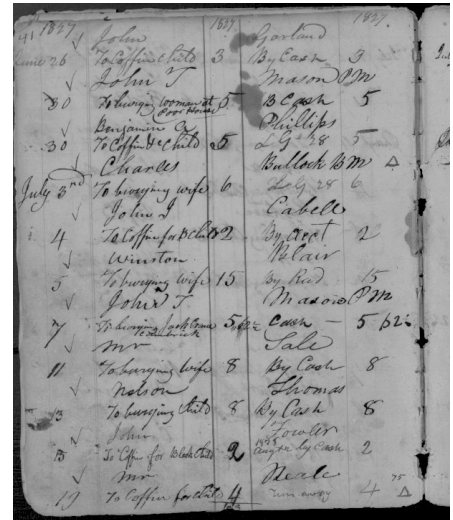 41 1827 1827 1827
John Garland
June 26 To Coffin Child 3 By Cash 3
John T Mason PM
30 To burying Woman at Poor House 5 B Cash 5
Benjamin Phillips
30 To Coffin &c Child 5 28 5
Charles Bullock BM
July 3rd To burying wife 6 28 6
John J Cabell
4 To Coffin for B Child 2 By acct 2
Winston Blair
5 To burying wife 15 By 15
John T Mason PM
7 To burying Jack 5,62½ Cash 5 62½
Mr Sale
11 To burying wife 8 By Cash 8
Nelson Thomas
13 To burying Child 8 By Cash 8
John Fowler
15 To Coffin for Black Child 2 by Cash 2
Mr Neale
19 To Coffin for Child 4 run away 4